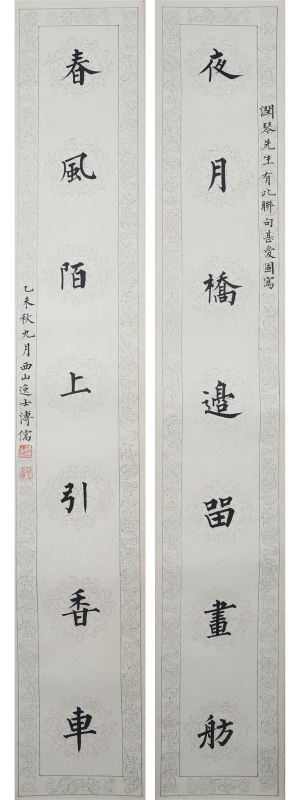 潤琴先生有此聯句甚愛因寫
夜月橋邊留畫舫
春風陌上引香車
乙未秋九月西山逸士溥儒